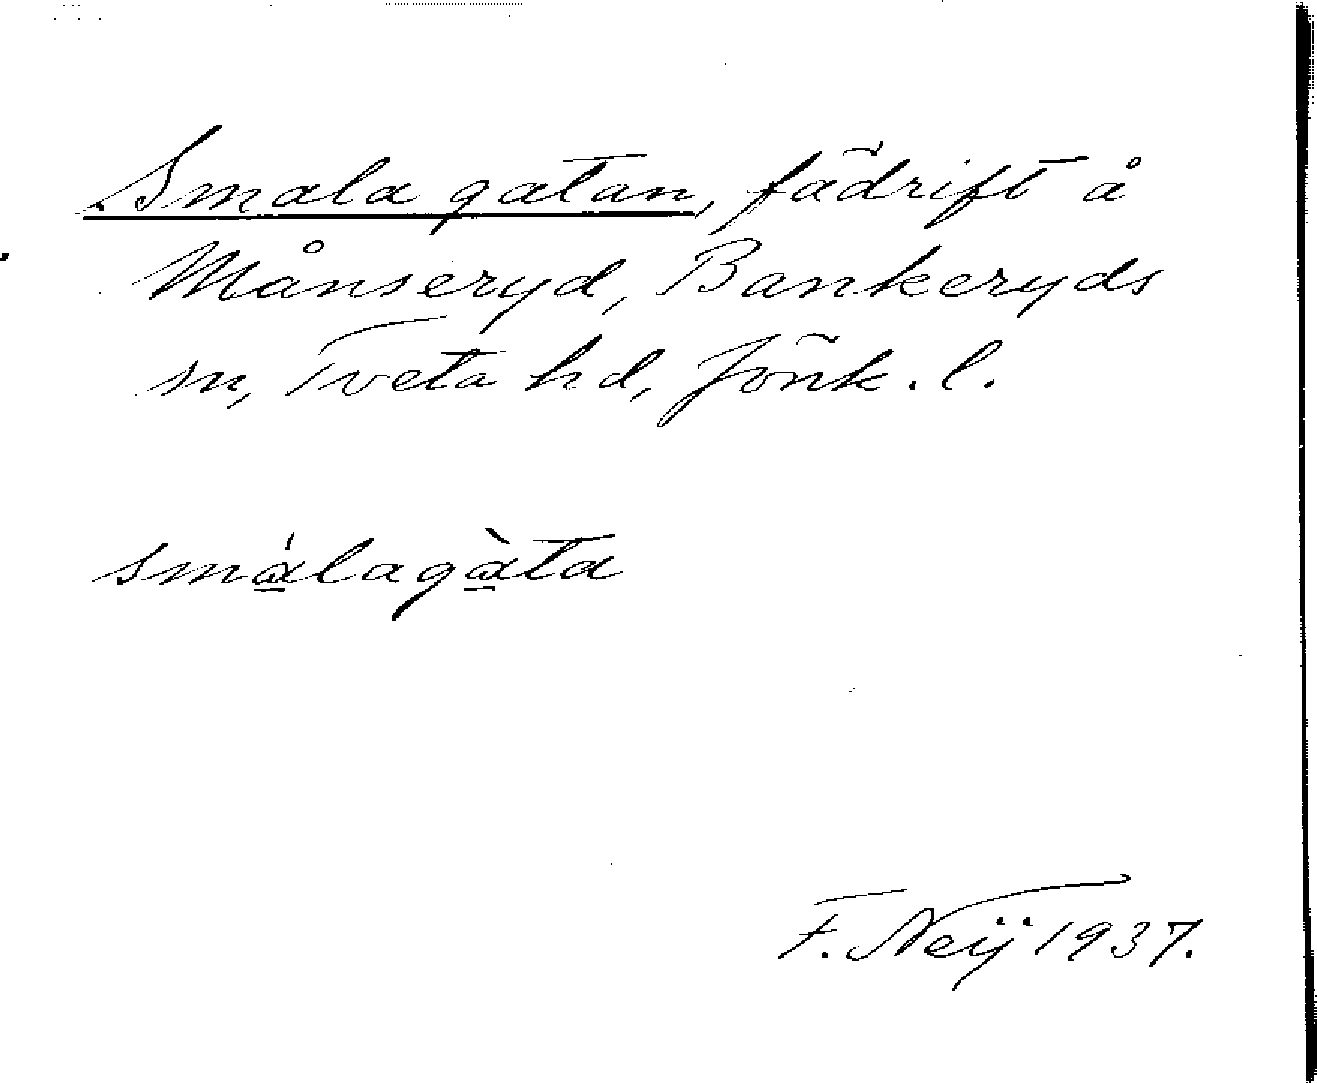 Smala gatan, fädrift å
Månseryd, Bankeryds
sn, Tveta hd, Jönk. l.
smá̱lagà̱ta
F. Neij 1937.